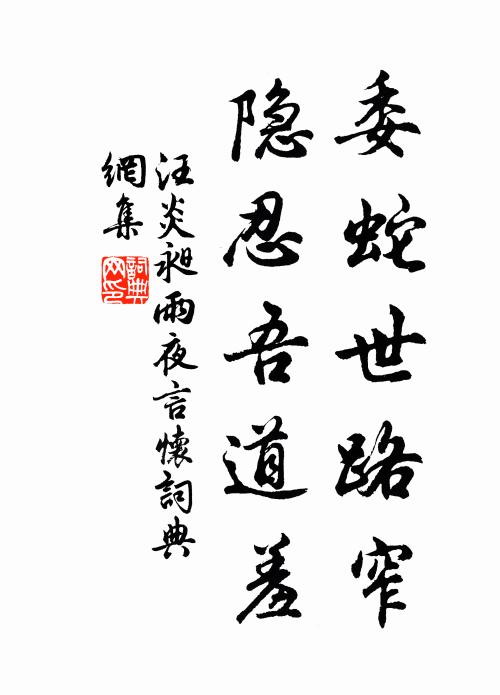 委蛇世路窄
隐忍吾道羞
汪炎昶雨夜言懷詞典
網集
詞典网印